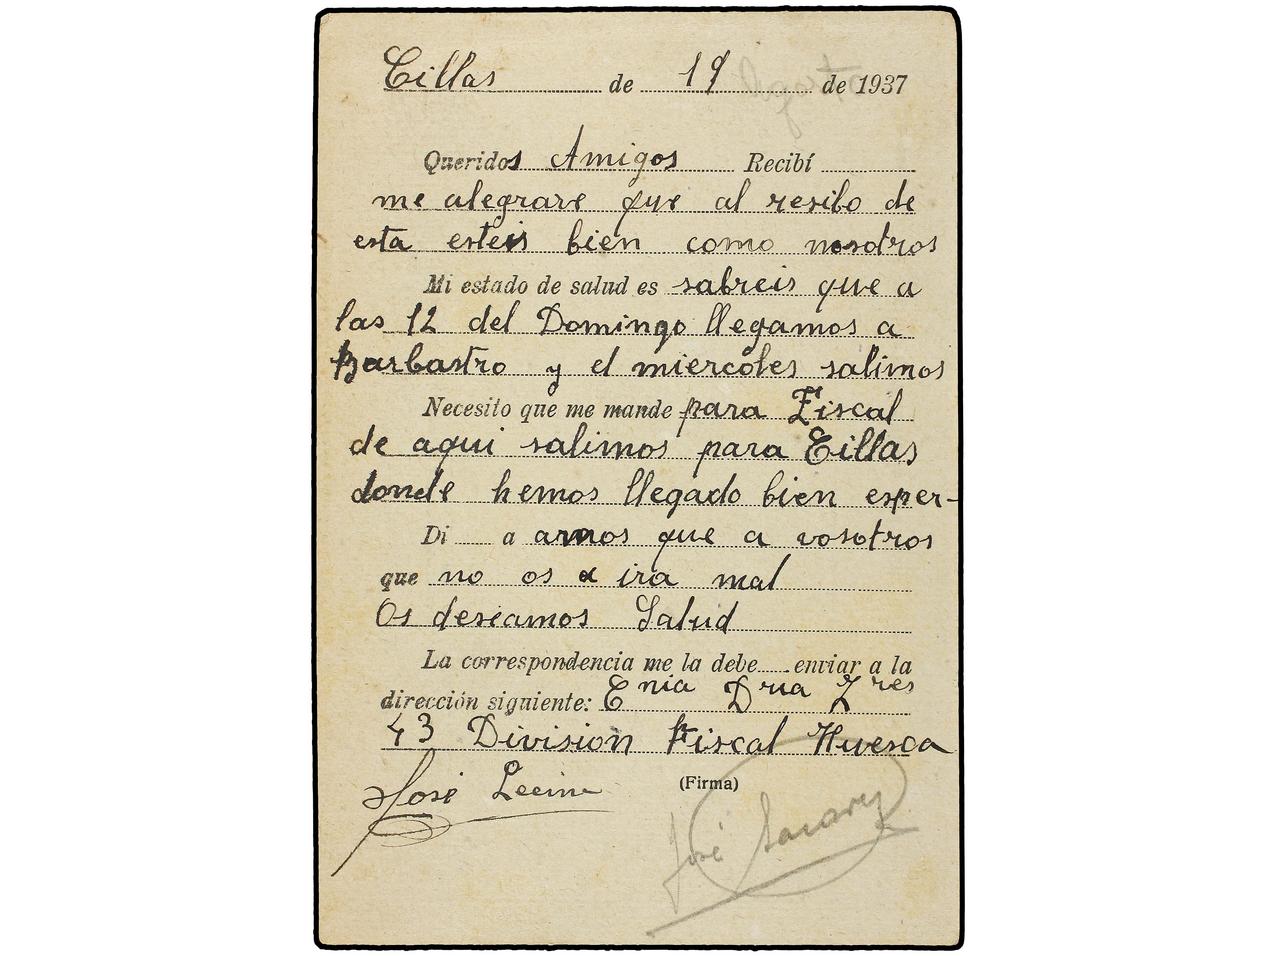 Cillas de 19 Agosto de 1937
Queridos Amigos Recibí
me alegrare que al resibo de
esta esteis bien como nosotros
Mi estado de salud es sabreis que a
las 12 del Domingo llegamos a
Barbastro y el miercoles salimos
Necesito que me mande para Fiscal
de aqui salimos para Cillas
donde hemos llegado bien esper-
Di a amos que a vosotros
que no os ira mal
Os deseamos Salud
La correspondencia me la debe enviar a la
dirección siguiente: Cnia Dria Zres
43 División Fiscal Huesca
José Lecina (Firma)
José